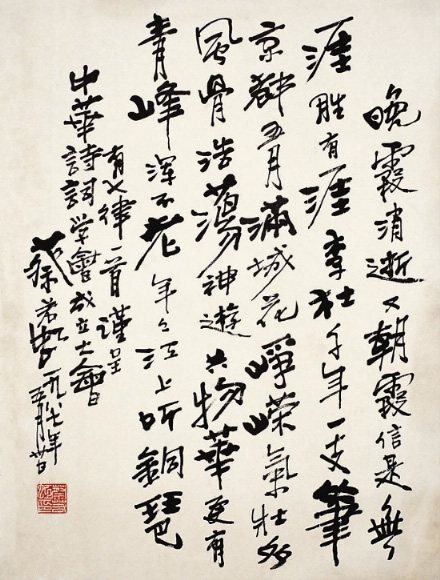 晚霞消逝又朝霞信是無
涯胜有涯李杜千年一支筆
京都五月滿城花崢嶸氣壯多
風骨浩蕩神遊共物華更有
青峰浑不老年々江上听銅琶
有七律一首謹呈
中華詩詞学會成立大會
蔡若虹一九八七年
五月廿日